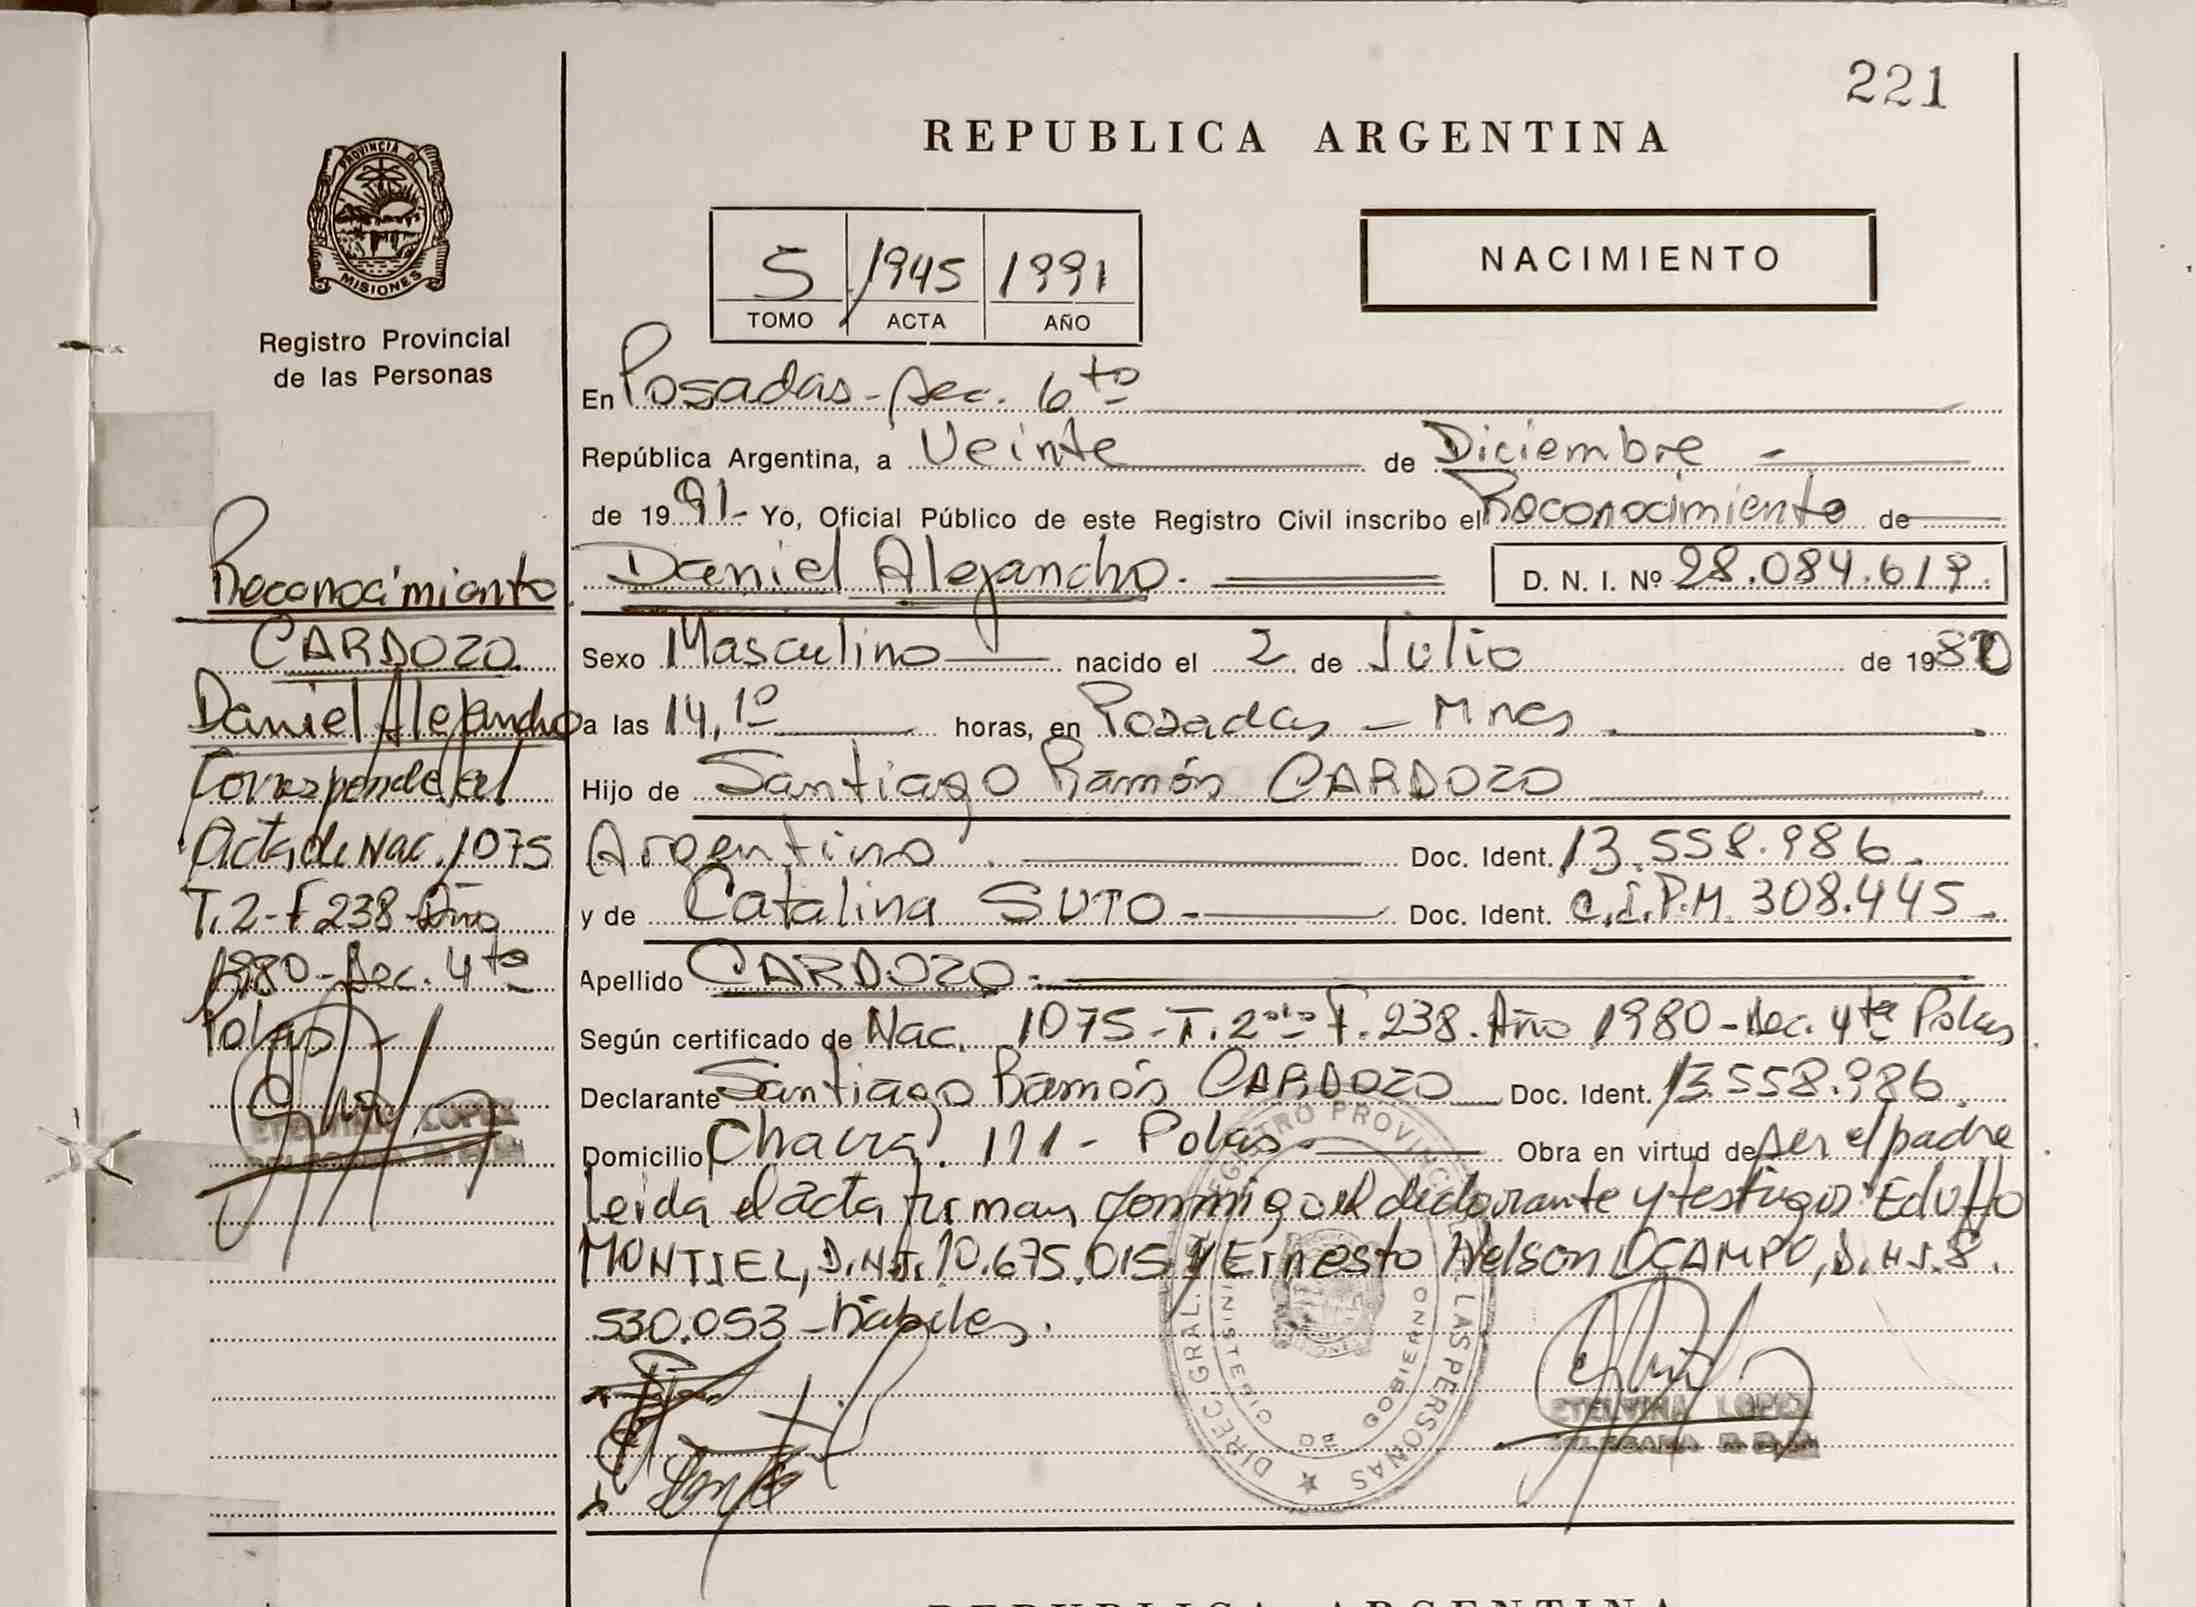 221
REPUBLICA ARGENTINA
PROVINCIA DE
MISIONES
Registro Provincial
de las Personas
5 1945 1991
TOMO ACTA AÑO
NACIMIENTO
En Posadas - Sec. 6to
República Argentina, a Veinte de Diciembre -
de 1991- Yo, Oficial Público de este Registro Civil inscribo el Reconocimiento de
Daniel Alejandro. D. N. I. Nº 28.084.619.
Sexo Masculino nacido el 2 de Julio de 1980
a las 14,10 horas, en Posadas - Mnes
Hijo de Santiago Ramón CARDOZO
Argentino. Doc. Ident. 13.558.986.
y de Catalina SUTO - Doc. Ident. C.I.P.M. 308.445.
Apellido CARDOZO.
Según certificado de Nac. 1075 - T. 2 F. 238. Año 1980 - Sec. 4ta Pdas
Declarante Santiago Ramón CARDOZO Doc. Ident. 13.558.986.
Domicilio Chacra. 111 - Pdas Obra en virtud de ser el padre
Leida el acta firman conmigo el declarante y testigos: Edulfo
MONTIEL, D.N.I. 10.675.015 y Ernesto Nelson OCAMPO, D.N.I. 8.
530.053 - hábiles.
Reconocimiento
CARDOZO
Daniel Alejandro
Corresponde al
Acta de Nac. 1075
T. 2 - F 238 - Año
1980 - Sec. 4ta
Pdas -
ETELVINA LOPEZ
DIREC. GRAL. REGISTRO PROVINCIAL LAS PERSONAS
MINISTERIO DE GOBIERNO
ETELVINA LOPEZ
REPUBLICA ARGENTINA